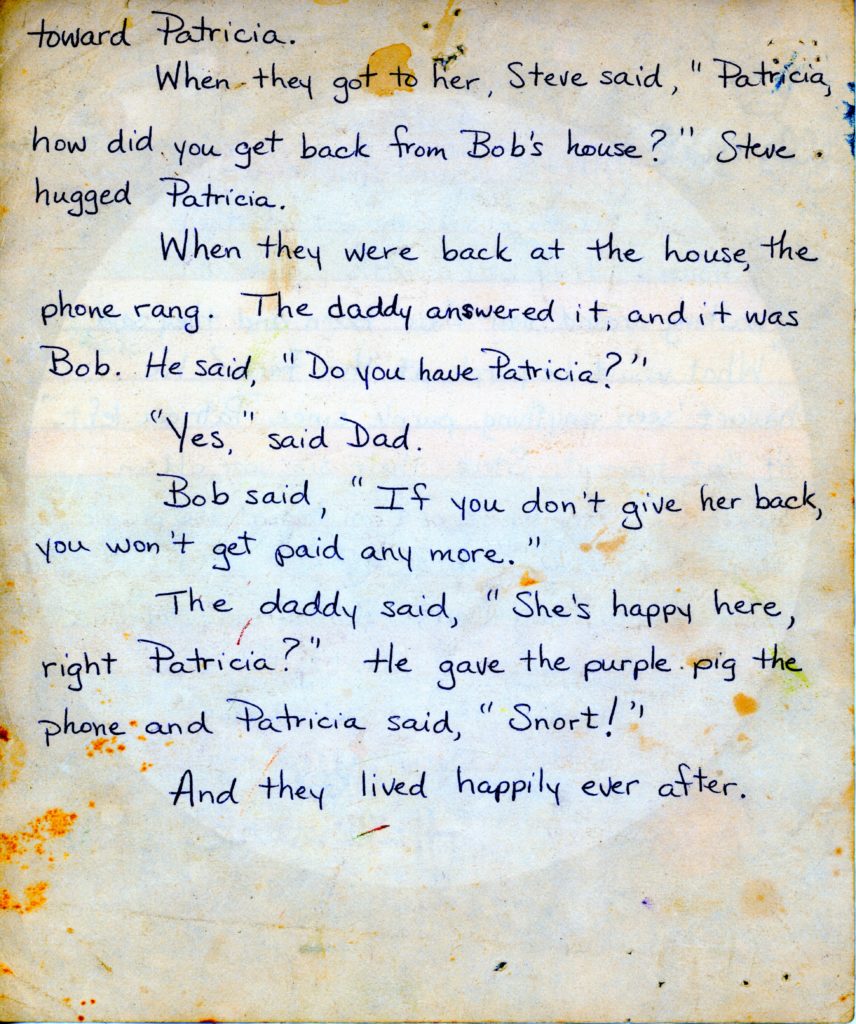 toward Patricia.
When they got to her, Steve said, "Patricia,
how did you get back from Bob's house?" Steve
hugged Patricia.
When they were back at the house, the
phone rang. The daddy answered it, and it was
Bob. He said, "Do you have Patricia?"
"Yes," said Dad.
Bob said, "If you don't give her back,
you won't get paid any more."
The daddy said, "She's happy here,
right Patricia?" He gave the purple pig the
phone and Patricia said, "Snort!"
And they lived happily ever after.